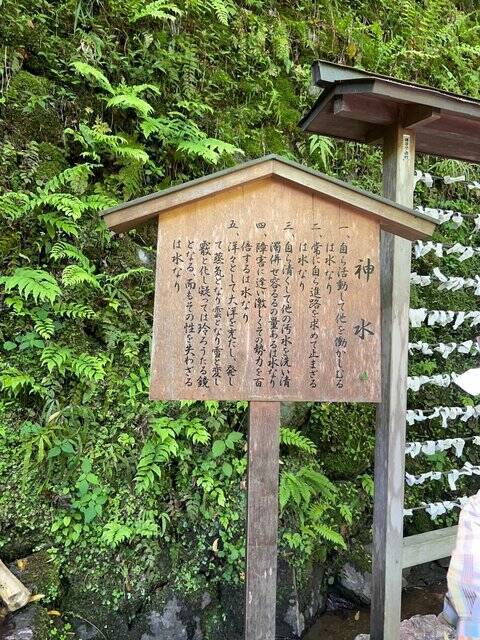 神水
一、自ら活動して他を動かしむる
は水なり
二、常に自ら進路を求めて止まざる
は水なり
三、自ら清くして他の汚水を洗い清
濁併せ容るるの量あるは水なり
四、障害に逢い激しくその勢力を百
倍するは水なり
五、洋々として大洋を充たし、発し
て蒸気となり雲となり雪と変し
霰と化し凝っては玲ろうたる鏡
となる、而もその性を失わざる
は水なり